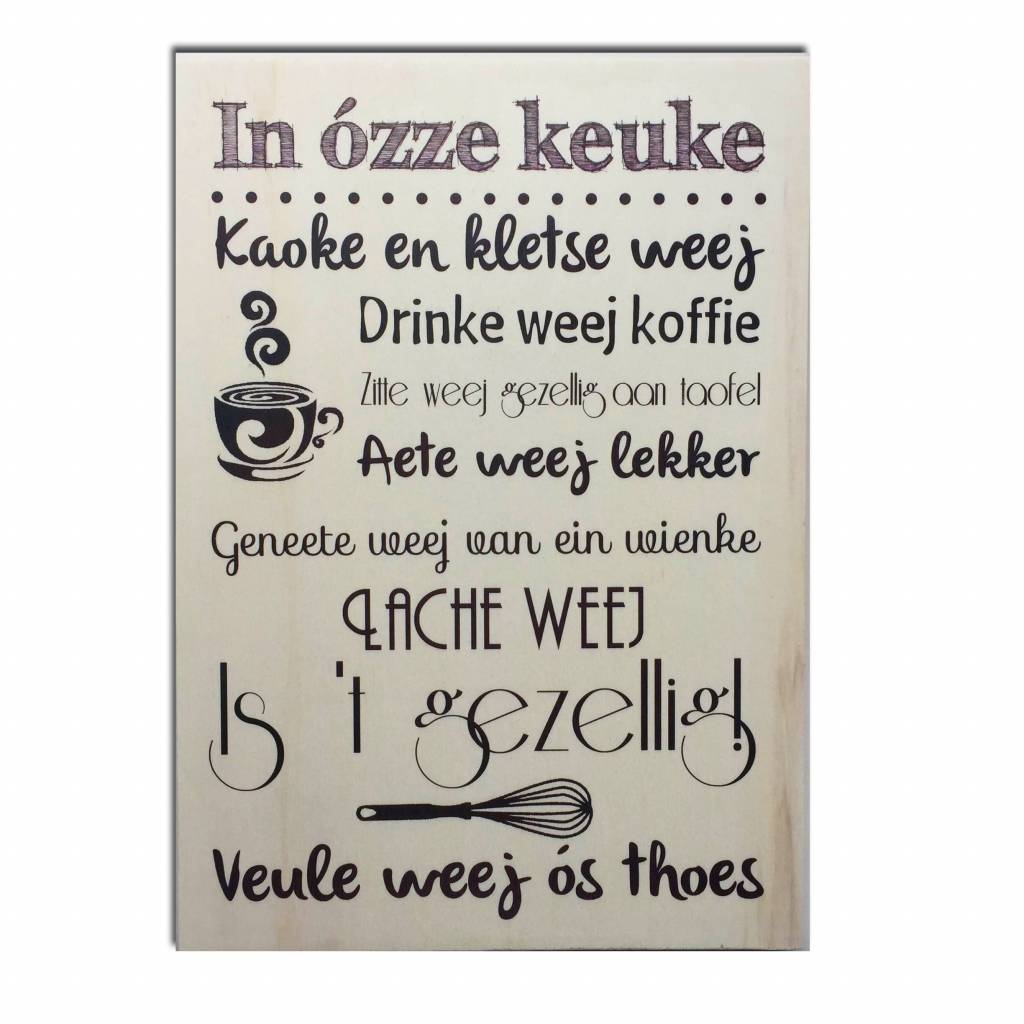 In ózze keuke
Kaoke en kletse weej
Drinke weej koffie
Zitte weej gezellig aan taofel
Aete weej lekker
Geneete weej van ein wienke
LACHE WEEJ
Is 't gezellig!
Veule weej ós thoes